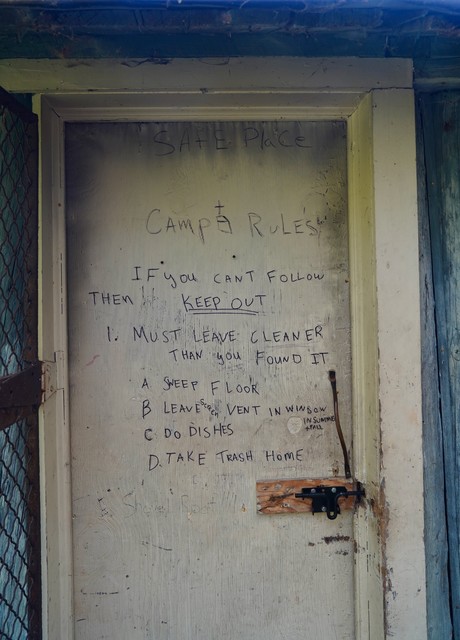 SAFE PLaCE
CAMP RULES
IF you CANT FOLLOW
THEN KEEP OUT
1. MUST LEAVE CLEANER
THAN you FOUND IT
A SWEEP FLOOR
B LEAVE VENT IN WINDOW
IN SUMMER
C DO DISHES
D. TAKE TRASH HOME